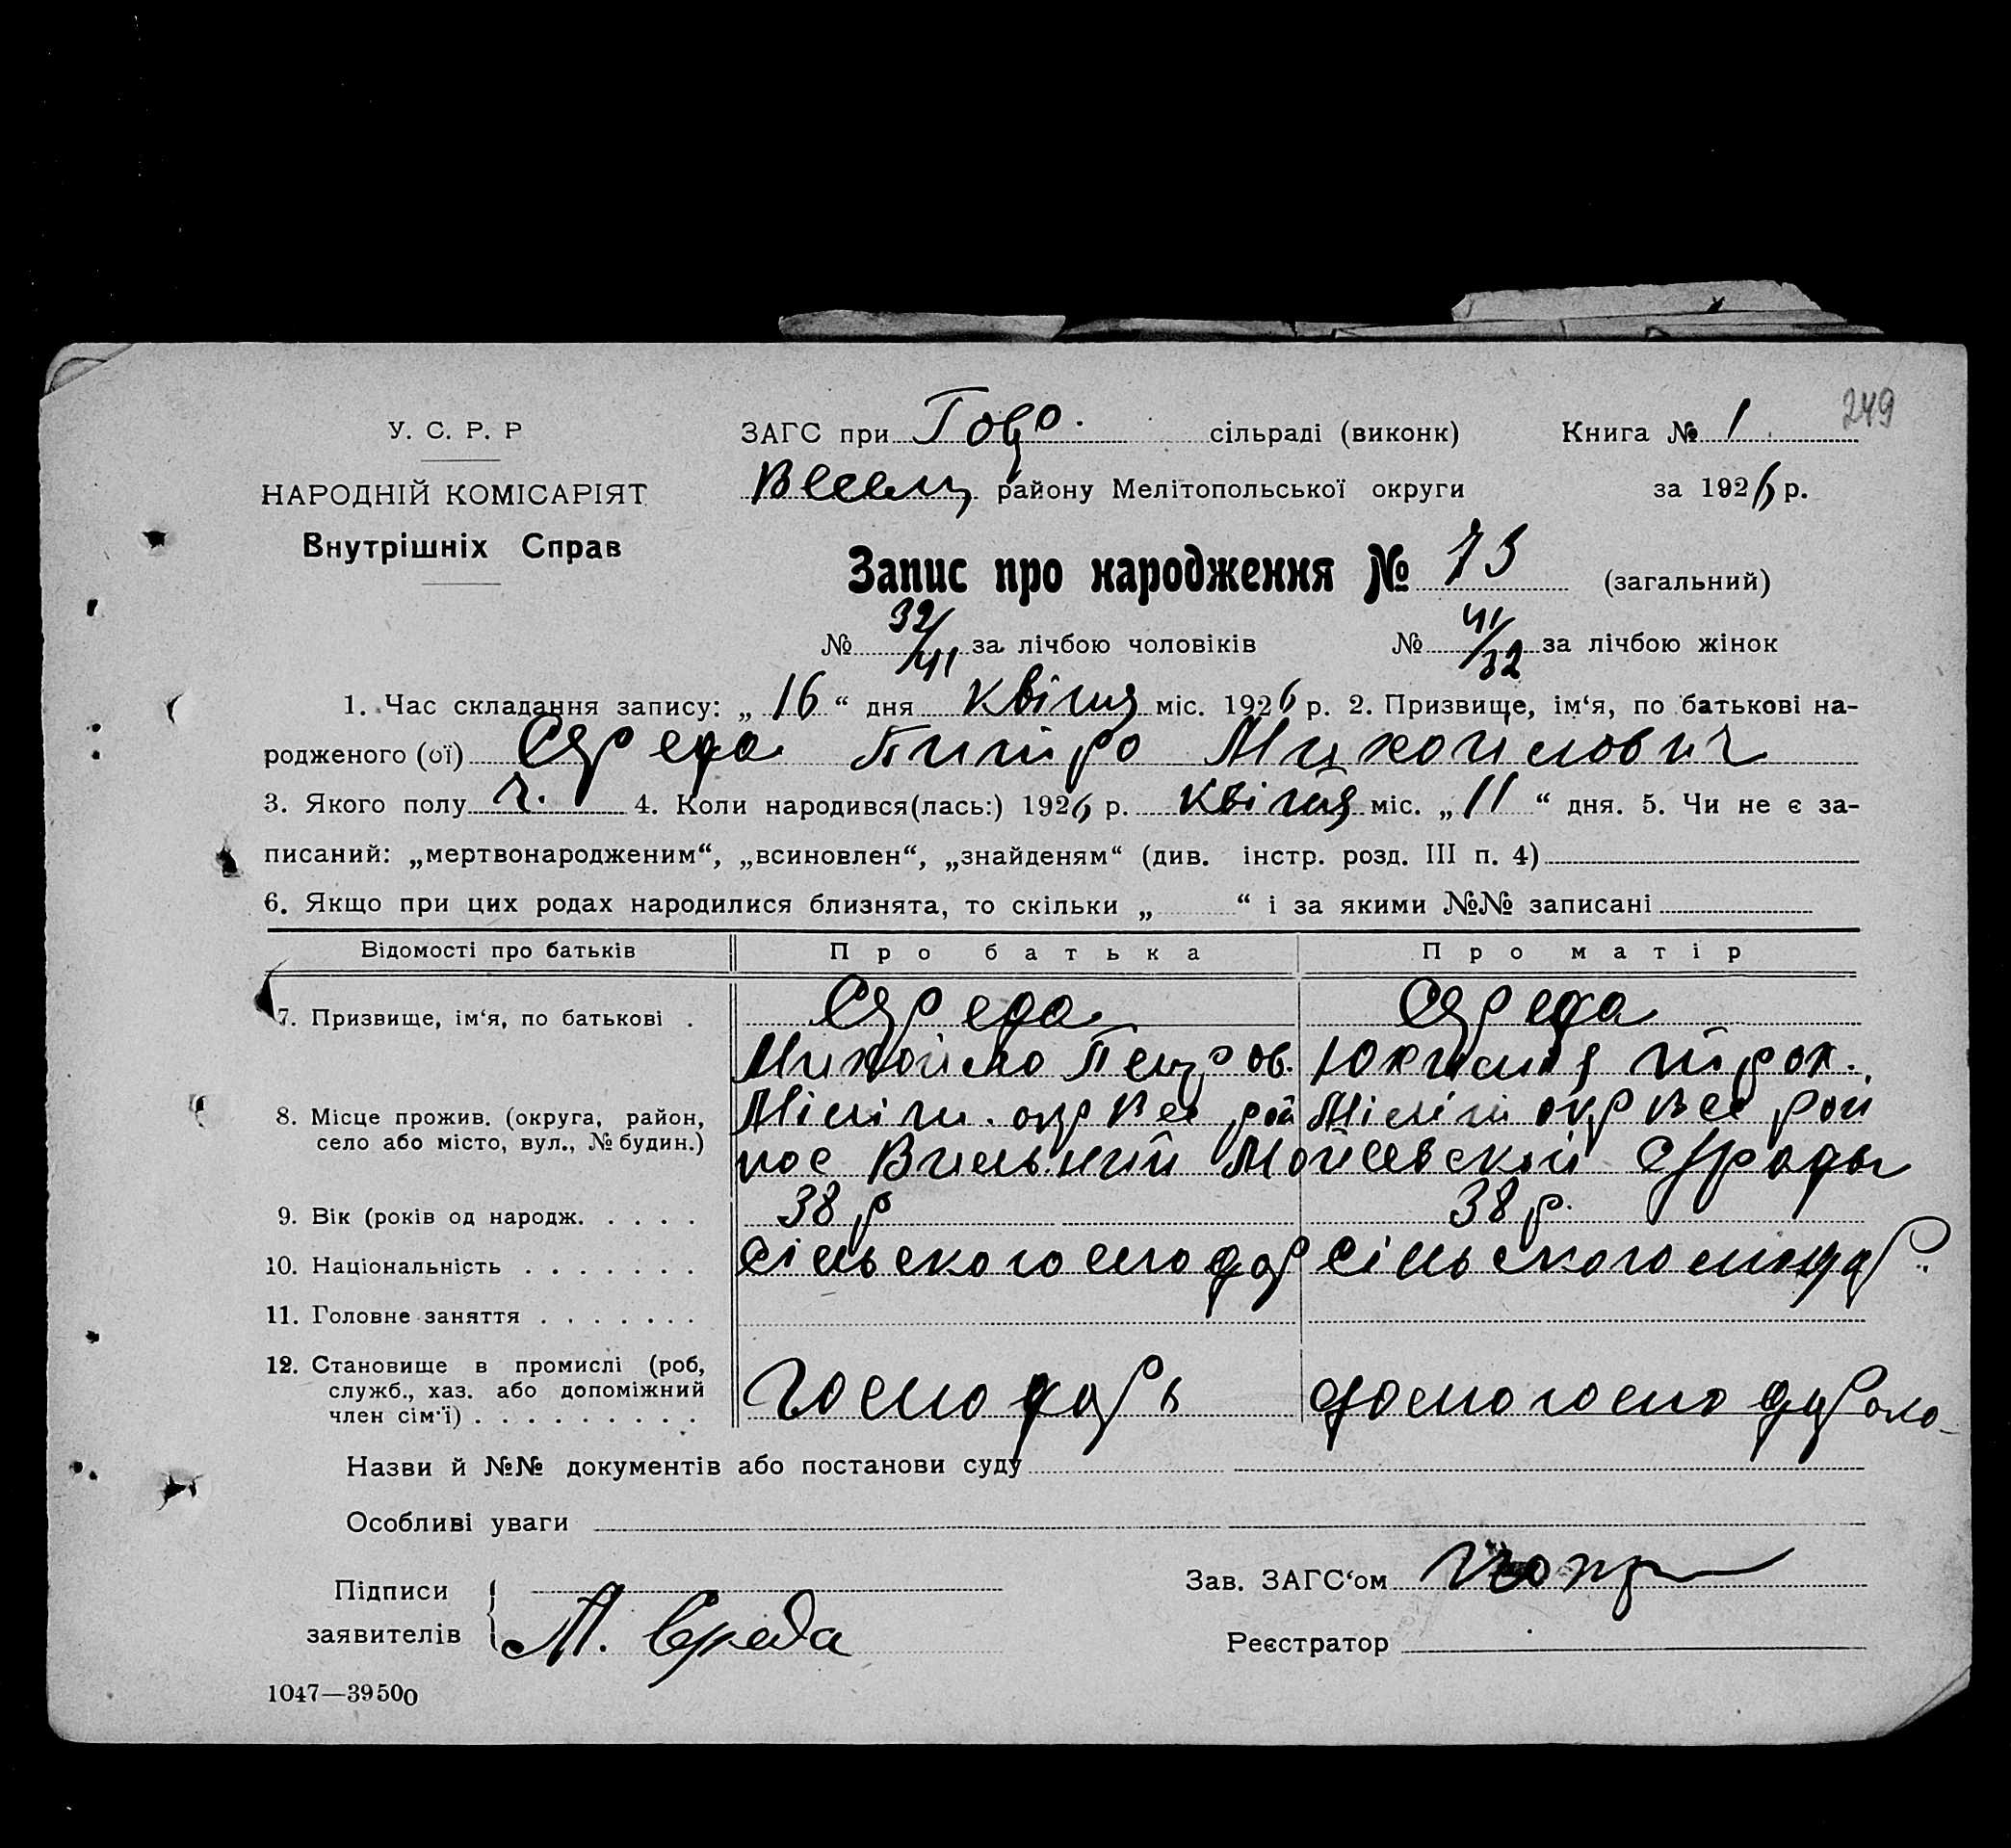 249
У. С. Р. Р
НАРОДНІЙ КОМІСАРІЯТ
Внутрішніх Справ
ЗАГС при сільраді (виконк) Книга № 1
району Мелітопольської округи за 1926 р.
Запис про народження № 73 (загальний)
№ 32/41 за лічбою чоловіків № 41/32 за лічбою жінок
1. Час складання запису: „ 16 “ дня квітня міс. 1926 р. 2. Призвище, ім‘я, по батькові на-
родженого (ої) Середа Митрофанович
3. Якого полу ч. 4. Коли народився(лась:) 1926 р. квітня міс. „ 11 “ дня. 5. Чи не є за-
писаний: „мертвонародженим“, „всиновлен“, „знайденям“ (див. інстр. розд. III п. 4)
6. Якщо при цих родах народилися близнята, то скільки „ “ і за якими №№ записані
Відомості про батьків Про батька Про матір
7. Призвище, ім‘я, по батькові . Середа Середа
Михайло Петров.
8. Місце прожив. (округа, район,
село або місто, вул., № будин.)
9. Вік (років од народж. . . . . 38 р 38 р.
10. Національність . . . . . . . сільського сподар сільського сподар.
11. Головне заняття . . . . . . .
12. Становище в промислі (роб,
служб., хаз. або допоміжний
член сім‘ї) . . . . . . . . . господарь
Назви й №№ документів або постанови суду
Особливі уваги
Підписи
заявителів М. Середа
Зав. ЗАГС‘ом
Реєстратор
1047—39500